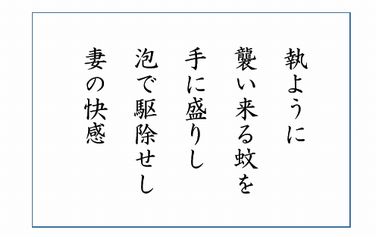 執ように
襲い来る蚊を
手に盛りし
泡で駆除せし
妻の快感